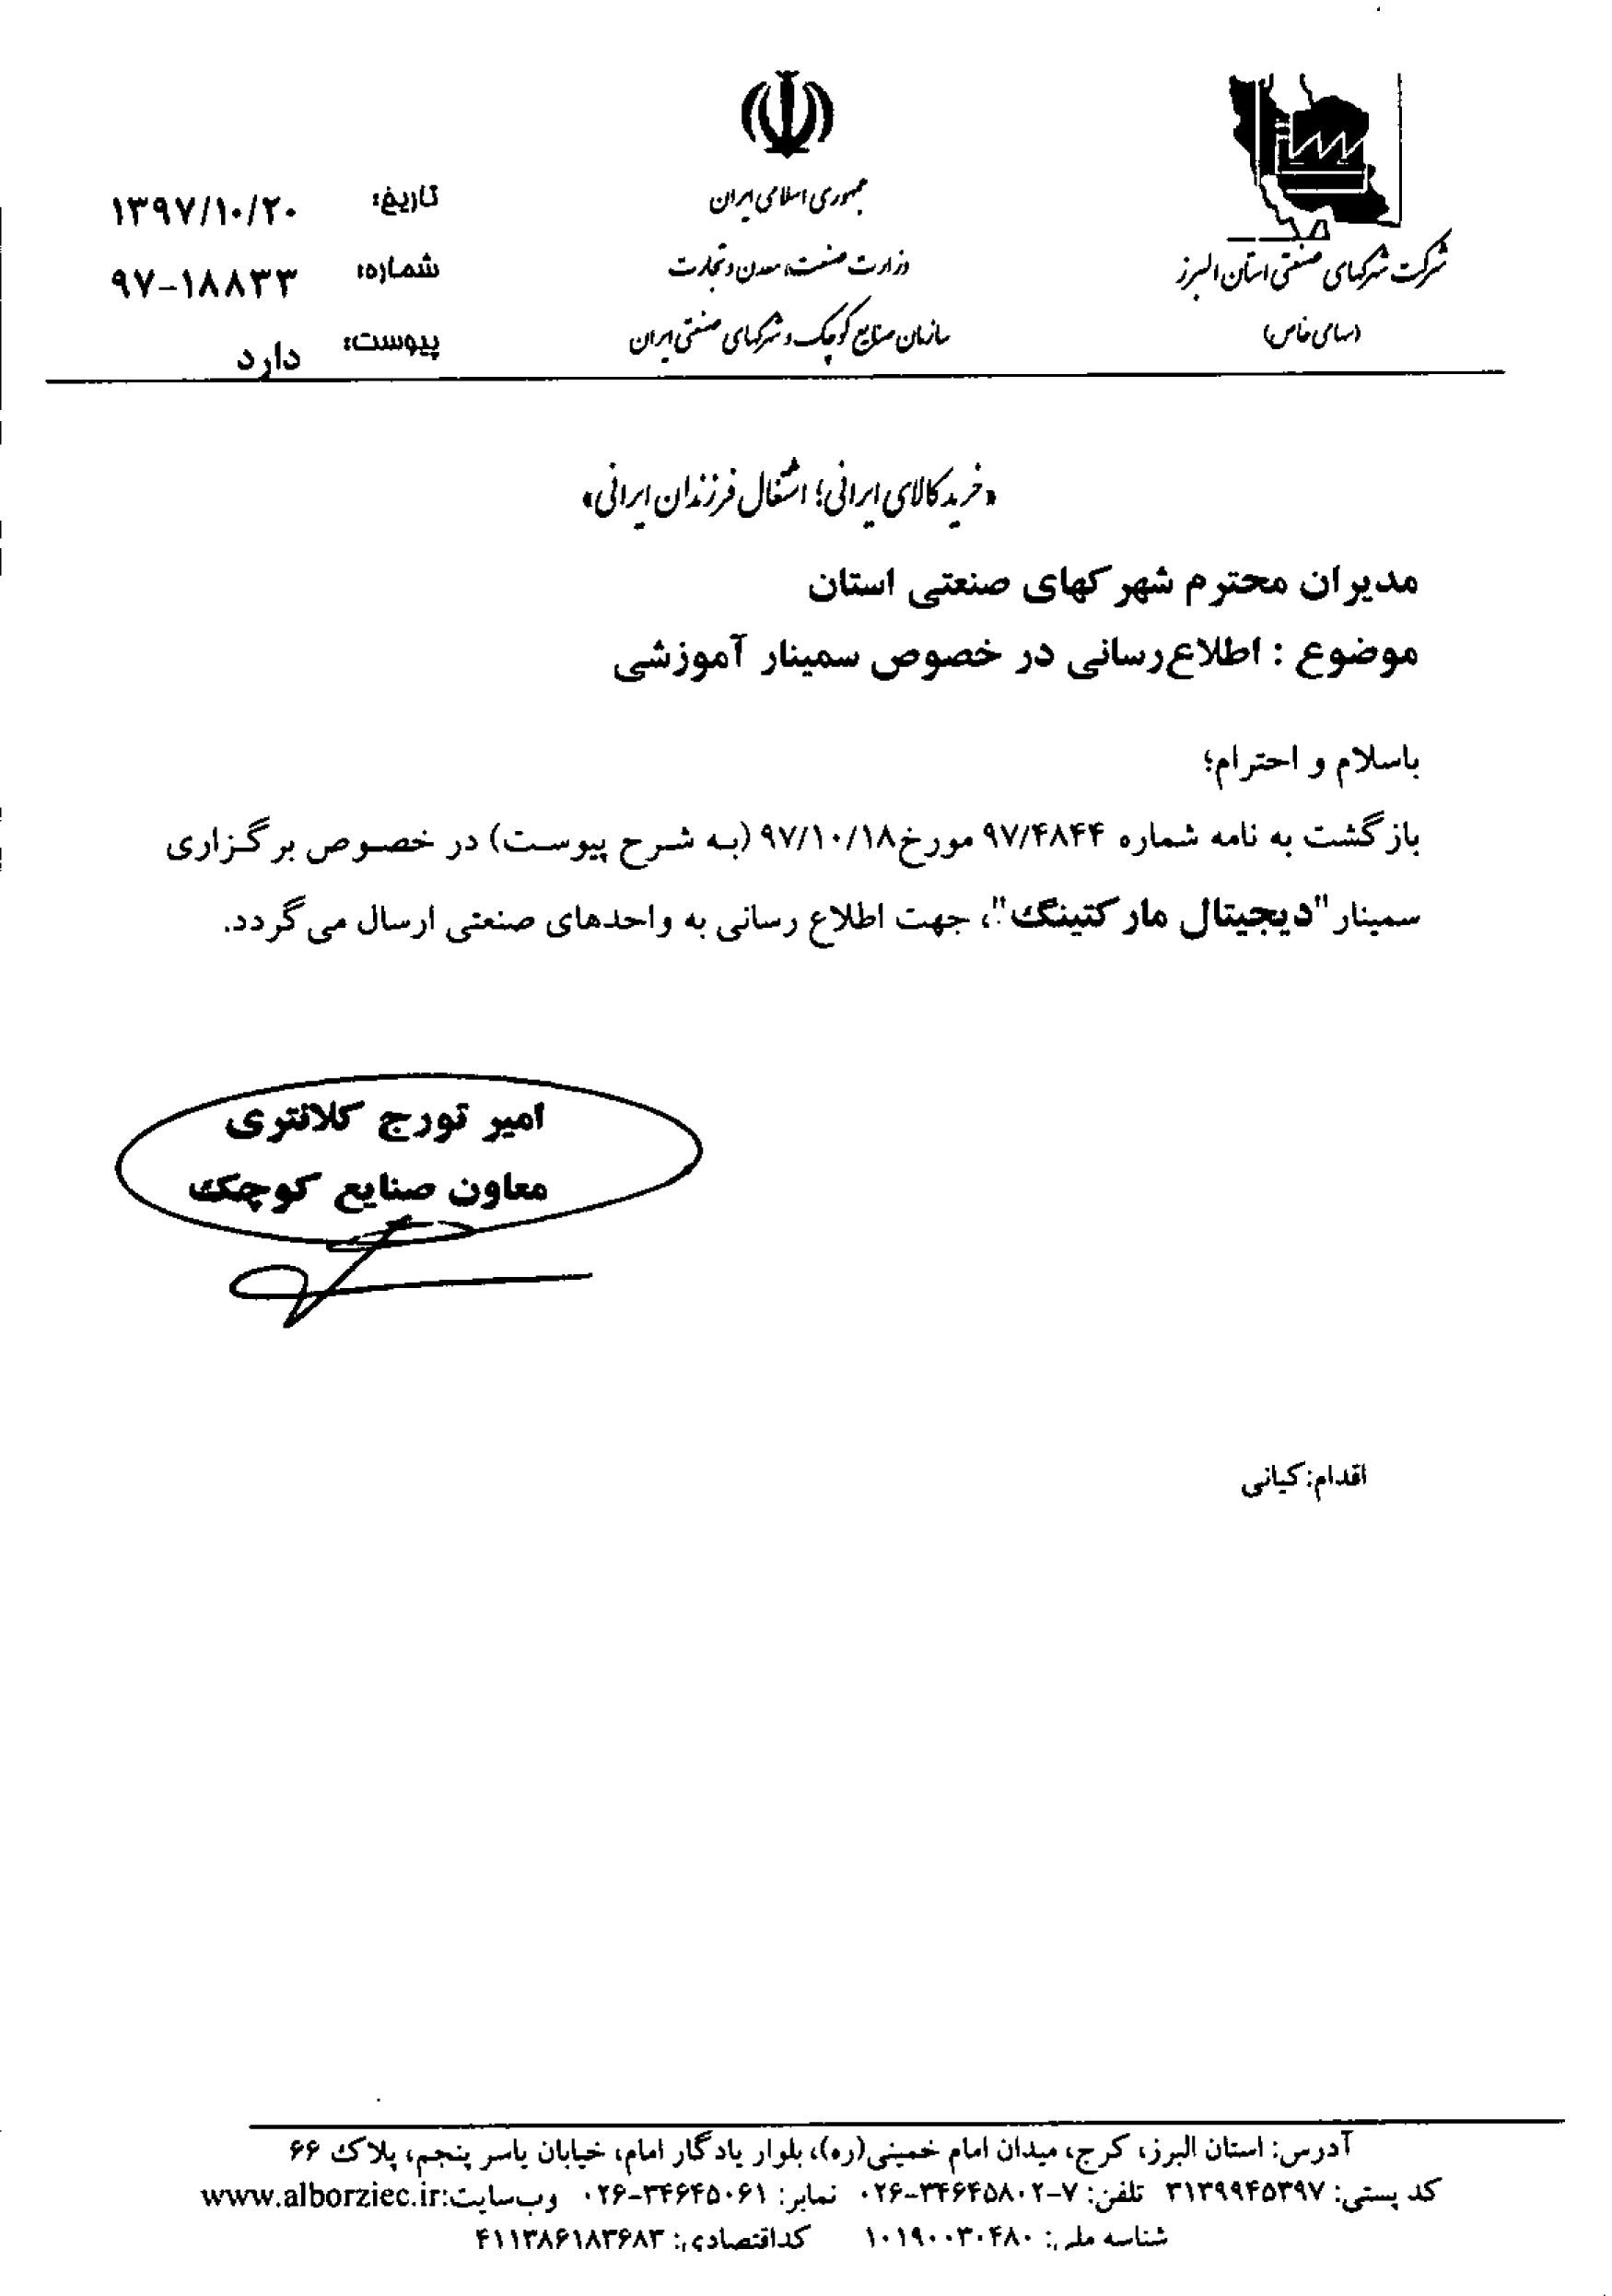 جمهوری اسلامی ایران
وزارت صنعت، معدن و تجارت
سازمان صنایع کوچک و شهرکهای صنعتی ایران
شرکت شهرکهای صنعتی استان البرز
(سهامی خاص)
تاریخ: ۱۳۹۷/۱۰/۲۰
شماره: ۹۷-۱۸۸۳۳
پیوست: دارد
«خرید کالای ایرانی؛ اشتغال فرزندان ایرانی»
مدیران محترم شهرکهای صنعتی استان
موضوع : اطلاع‌رسانی در خصوص سمینار آموزشی
باسلام و احترام؛
بازگشت به نامه شماره ۹۷/۴۸۴۴ مورخ۹۷/۱۰/۱۸ (به شرح پیوست) در خصوص برگزاری
سمینار "دیجیتال مارکتینگ"، جهت اطلاع رسانی به واحدهای صنعتی ارسال می گردد.
امیر تورج کلانتری
معاون صنایع کوچک
اقدام:کیانی
آدرس: استان البرز، کرج، میدان امام خمینی(ره)، بلوار یادگار امام، خیابان یاسر پنجم، پلاک ۶۶
کد پستی: ۳۱۳۹۹۴۵۳۹۷ تلفن: ۷-۰۲۶-۳۴۶۴۵۸۰۲ نمابر: ۰۲۶-۳۴۶۴۵۰۶۱ وب‌سایت:www.alborziec.ir
شناسه ملی: ۱۰۱۹۰۰۳۰۴۸۰ کداقتصادی: ۴۱۱۳۸۶۱۸۳۶۸۳